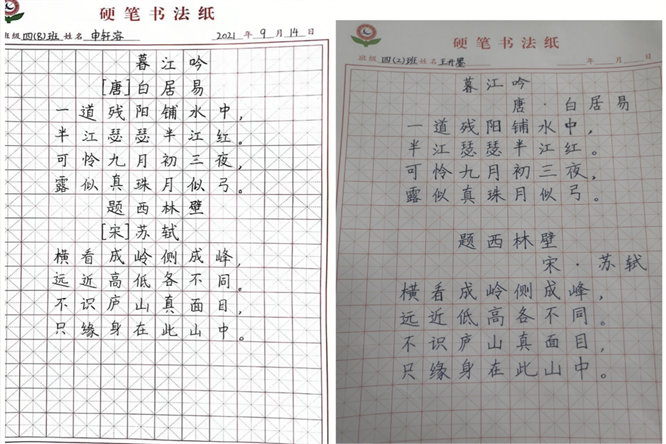 硬笔书法纸
班级 四(8)班 姓名 申轩容 2021 年 9 月 14 日
暮江吟
[唐]白居易
一道残阳铺水中,
半江瑟瑟半江红。
可怜九月初三夜,
露似真珠月似弓。
题西林壁
[宋]苏轼
横看成岭侧成峰,
远近高低各不同。
不识庐山真面目,
只缘身在此山中。
硬笔书法纸
班级 四(2)班 姓名 年 月 日
暮江吟
唐·白居易
一道残阳铺水中,
半江瑟瑟半江红。
可怜九月初三夜,
露似真珠月似弓。
题西林壁
宋·苏轼
横看成岭侧成峰,
远近低高各不同。
不识庐山真面目,
只缘身在此山中。